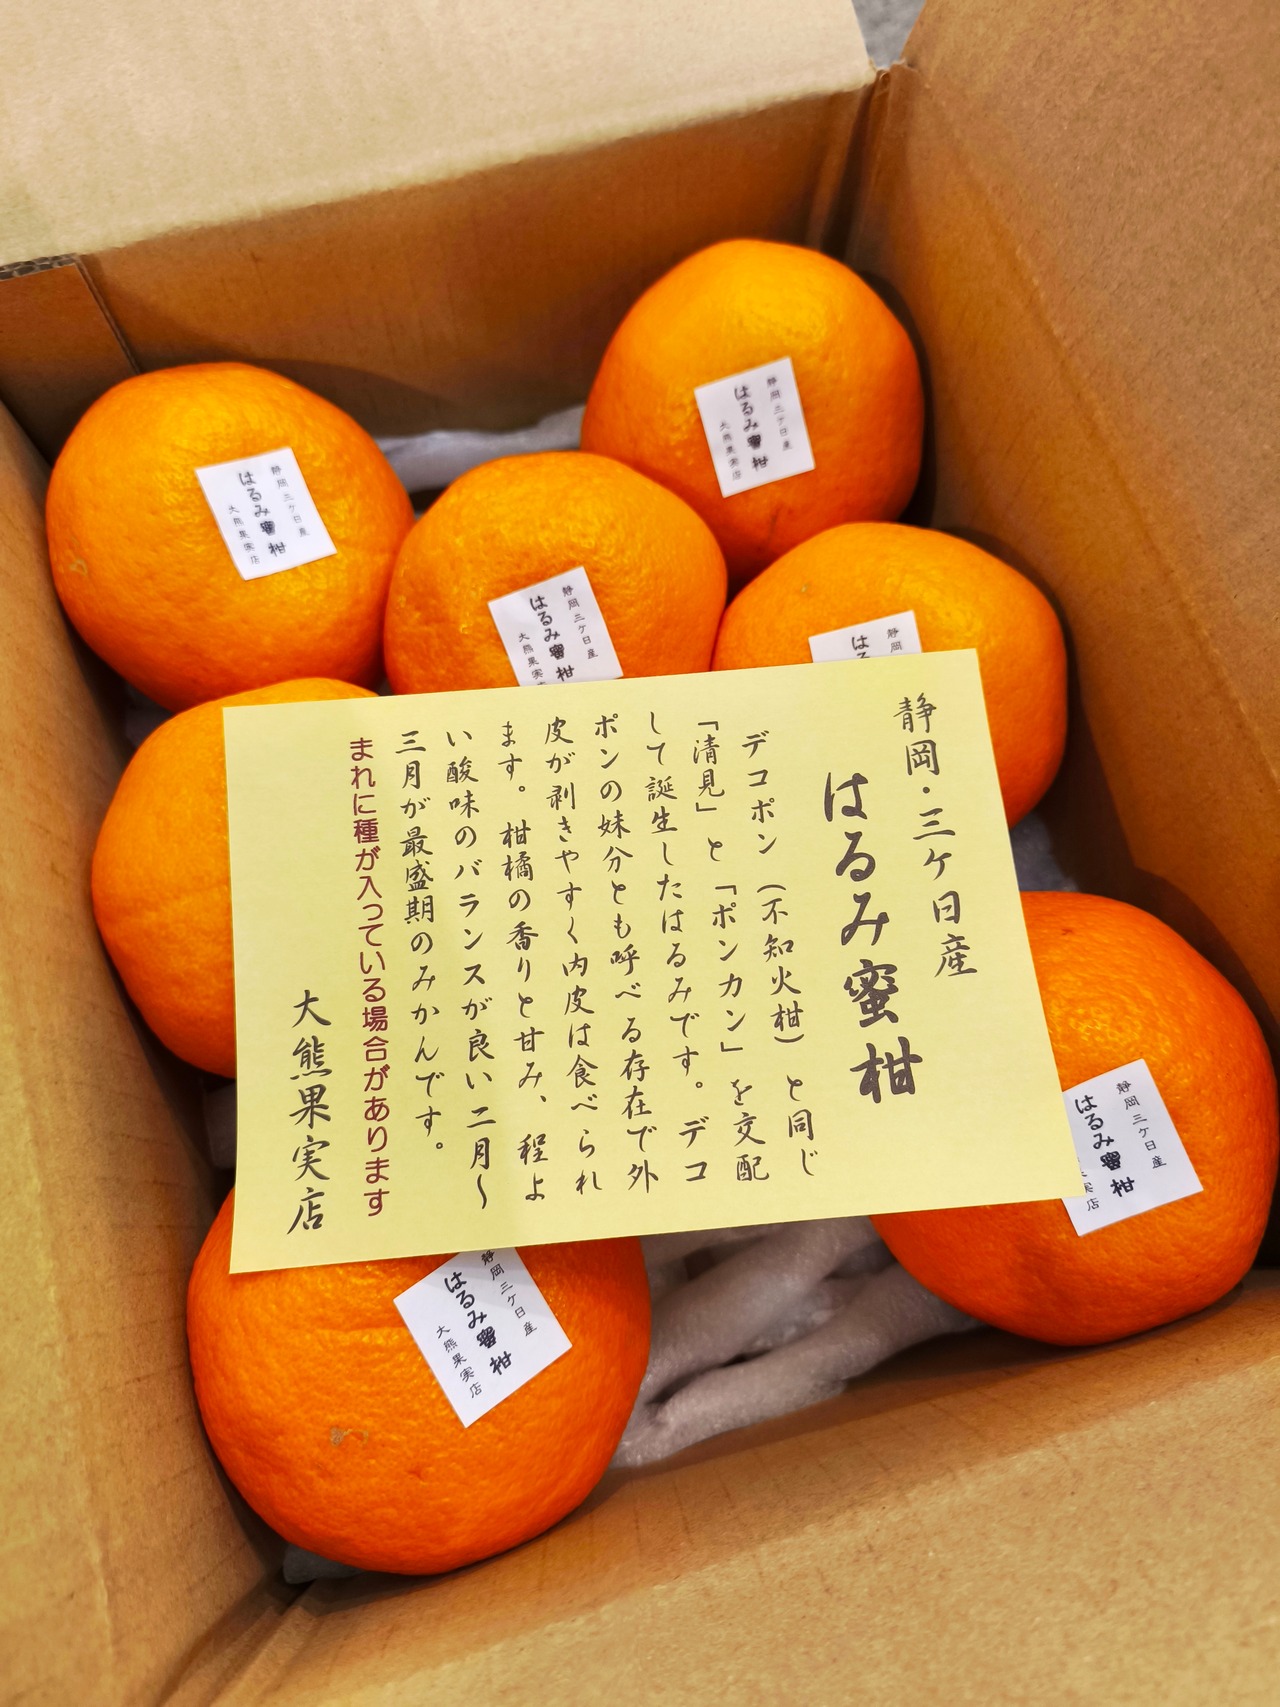 静岡・三ケ日産
はるみ蜜柑
デコポン（不知火柑）と同じ
「清見」と「ポンカン」を交配
して誕生したはるみです。デコ
ポンの妹分とも呼べる存在で外
皮が剥きやすく内皮は食べられ
ます。柑橘の香りと甘み、程よ
い酸味のバランスが良い二月～
三月が最盛期のみかんです。
まれに種が入っている場合があります
大熊果実店
静岡三ケ日産
はるみ蜜柑
大熊果実店
静岡三ケ日産
はるみ蜜柑
大熊果実店
静岡三ケ日産
はるみ蜜柑
大熊果実
静岡
はる
静岡三ケ日産
はるみ蜜柑
店
静岡三ケ日産
はるみ蜜柑
大熊果実店